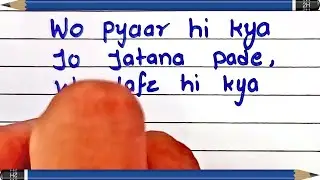 Wo pyaar hi kya
Jo Jatana pade,
lafz hi kya